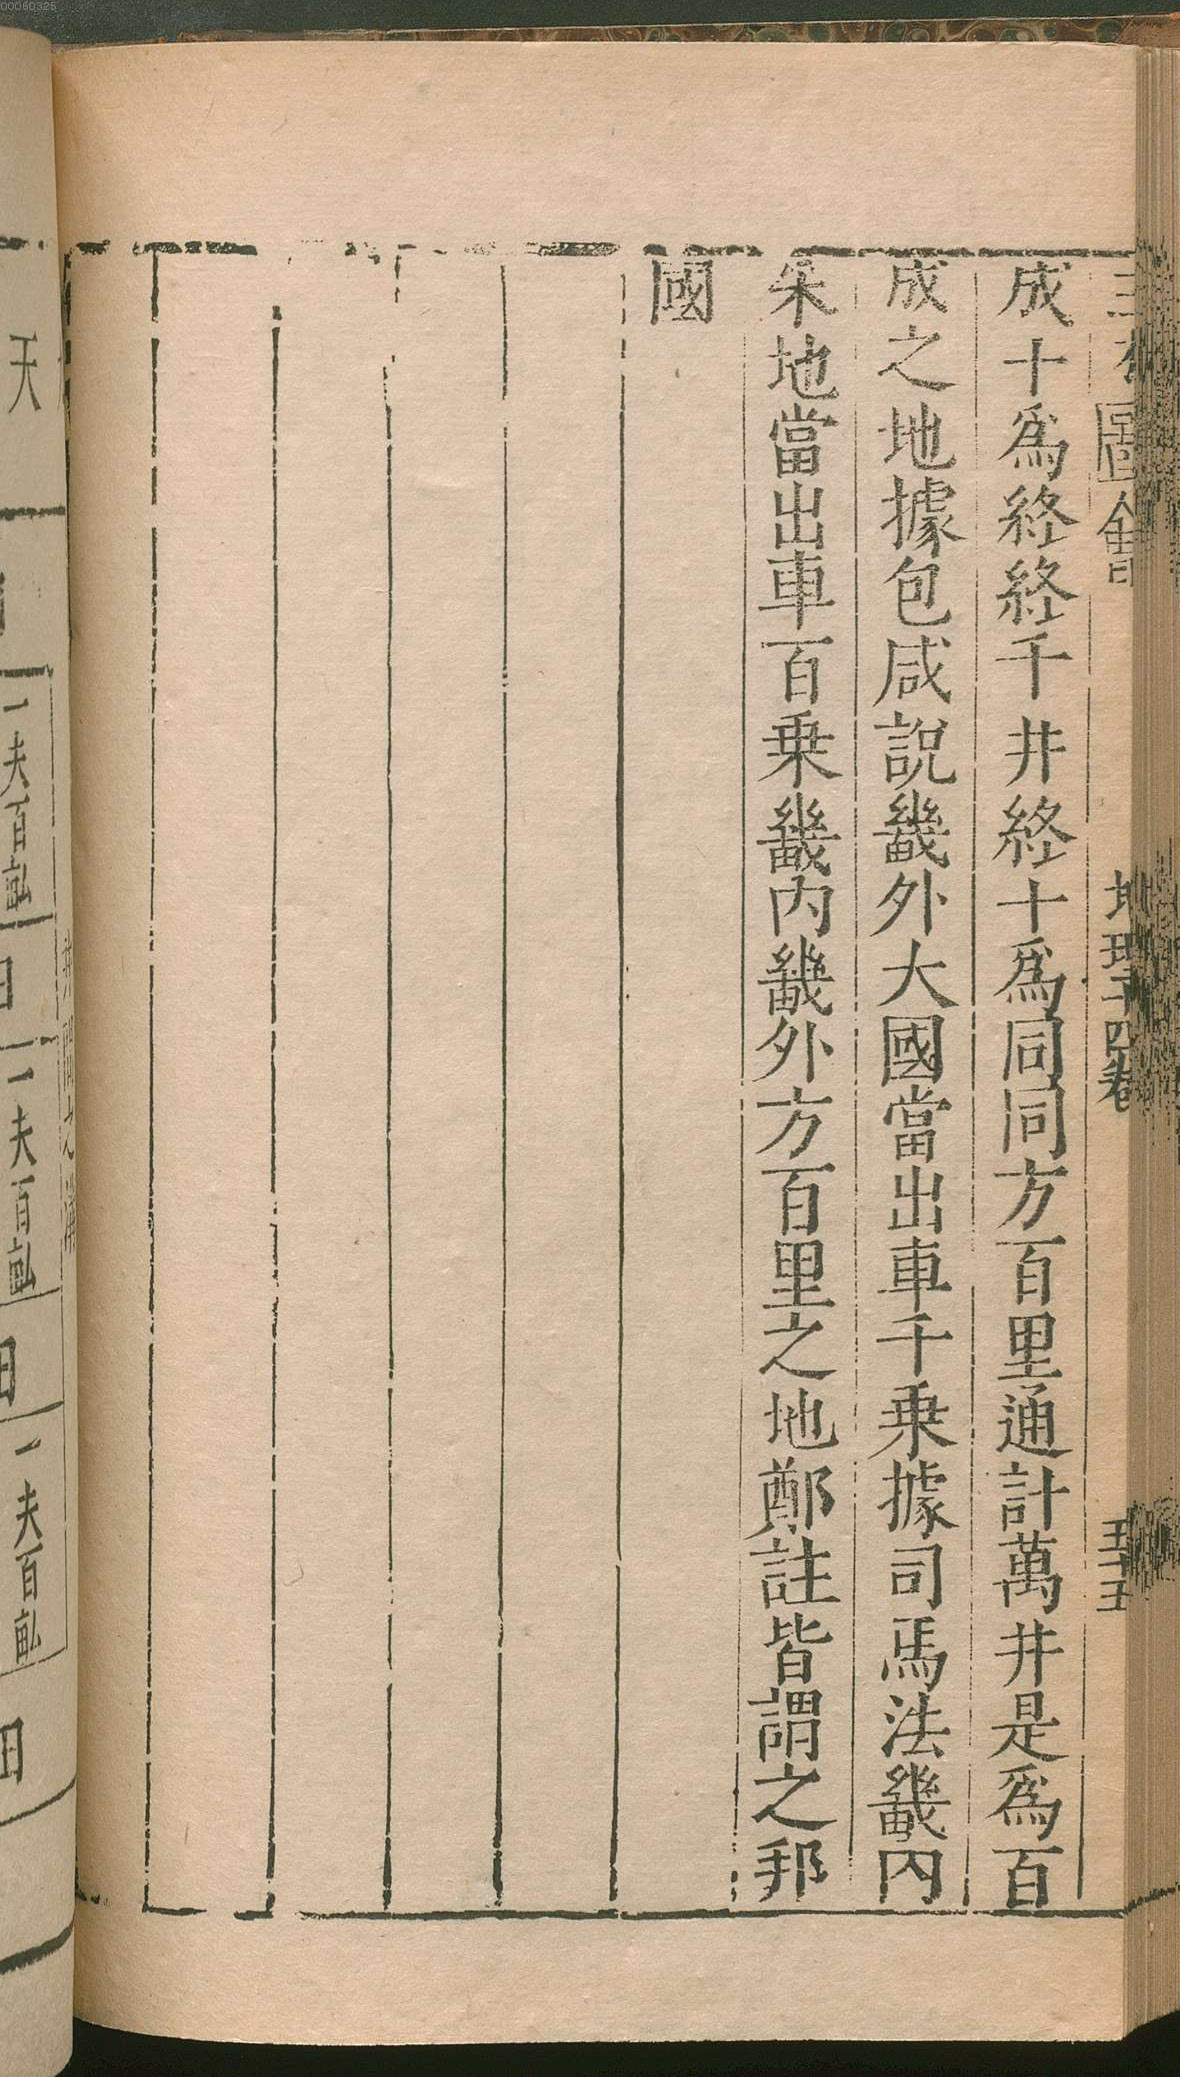 成十爲終終千井終十爲同同方百里通計萬井是爲百
成之地據包咸說畿外大國當出車千乗據司馬法畿内
采地當出車百乗畿内畿外方百里之地鄭註皆謂之邦
國
圖會
地理十四卷
井間之溝
天
一夫百畝
一夫百畝
一夫百畝
00060325